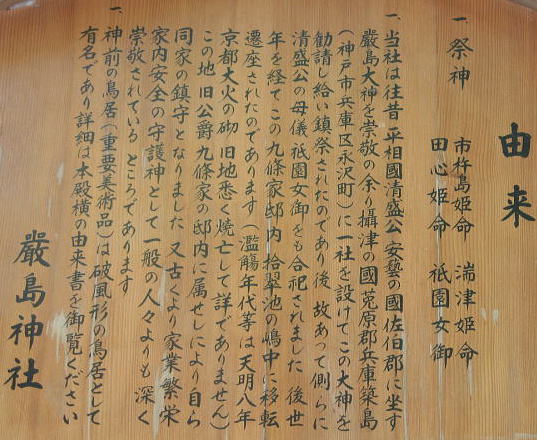 由来
一、祭神 市杵島姫命 湍津姫命
田心姫命 祇園女御
一、当社は往昔 平相國清盛公 安藝の國佐伯郡に坐す
嚴島大神を崇敬の余り攝津の國菟原郡兵庫築島
(神戸市兵庫区永沢町)に一社を設けてこの大神を
勧請し給い鎮祭されたのであり後 故あって側らに
清盛公の母儀祇園女御をも合祀されました 後世
年を経てこの九條家邸内 拾翠池の嶋中に移転
遷座されたのであります(濫觴年代等は天明八年
京都大火の砌 旧地悉く焼亡して詳でありません)
この地 旧公爵 九條家の邸内に属せしにより自ら
同家の鎮守となりました 又古くより家業繁栄
家内安全の守護神として一般の人々よりも 深く
崇敬されている ところであります
一、神前の鳥居(重要美術品)は破風形の鳥居として
有名であり詳細は本殿横の由来書を御覧ください
嚴島神社